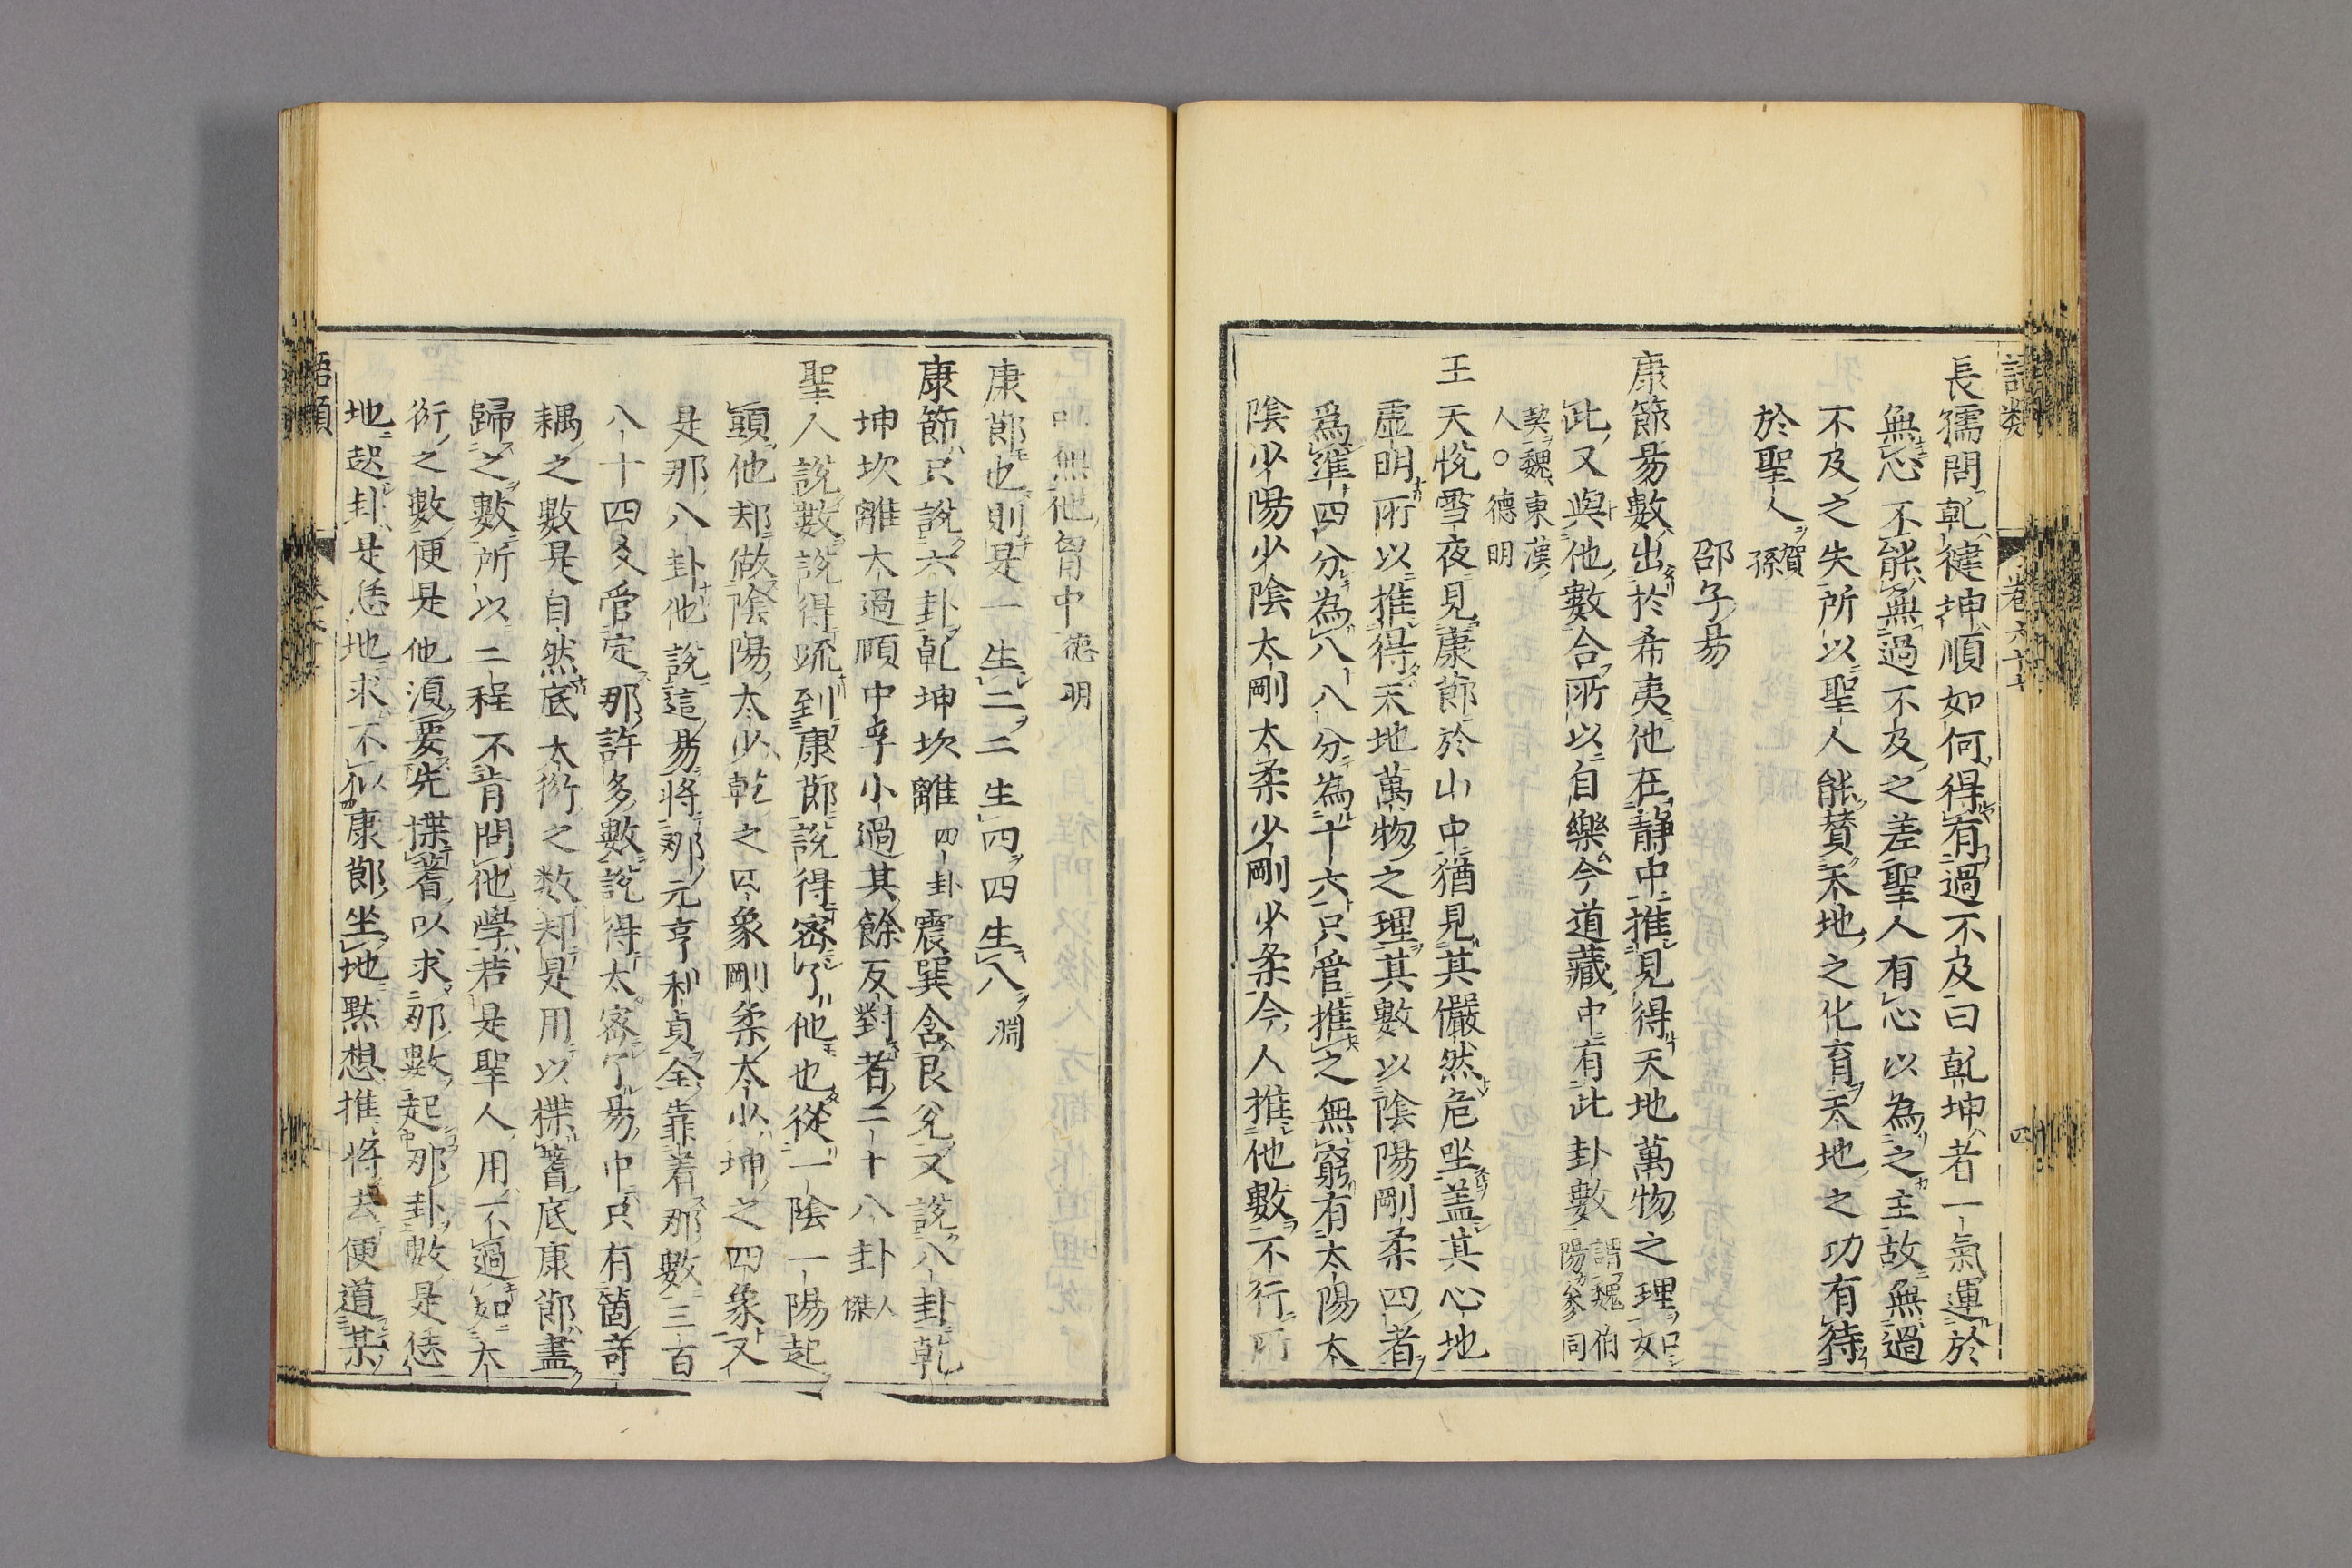 長孺問乾健坤順如何得有過不及曰乾坤者一氣運於
無心不能無過不及之差聖人有心以為之主故無過
不及之失所以聖人能賛天地之化育天地之功有待
於聖人賀孫
邵子易
康節易數出於希夷他在靜中推見得天地萬物之理如
此又與他數合所以自樂今道藏中有此卦數謂魏伯陽參同
契魏東漢人○德明
王天悅雪夜見康節於山中猶見其儼然危坐盖其心地
虛明所以推得天地萬物之理其數以陰陽剛柔四者
爲準四分為八八分為十六只管推之無窮有太陽太
陰少陽少陰太剛太柔少剛少柔今人推他數不行所
以無他胷中德明
康節也則是一生二二生四四生八淵
康節只說六卦乾坤坎離四卦震巽含艮兌又說八卦乾
坤坎離大過頤中孚小過其餘反對者二十八卦人傑
聖人說數說得疏到康節說得密了他也從一陰一陽起
頭他却做陰陽太少乾之四象剛柔太少坤之四象又
是那八卦他說這易將那元亨利貞全靠着那數三百
八十四爻管定那許多數說得太密了易中只有箇奇
耦之數是自然底大衍之数却是用以揲蓍底康節盡
歸之數所以二程不肯問他學若是聖人用不過如大
衍之數便是他須要先揲蓍以求那數起那卦數是恁
地起卦是恁地求不似康節坐地默想推將去便道某
語類
卷六十七
四